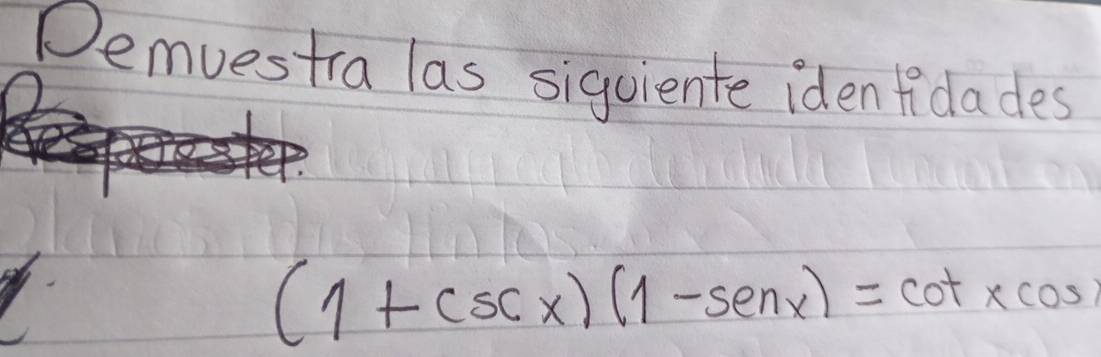 Demuestra las siguiente identidades
(1 + csc x) (1 - senx) = cot x cos